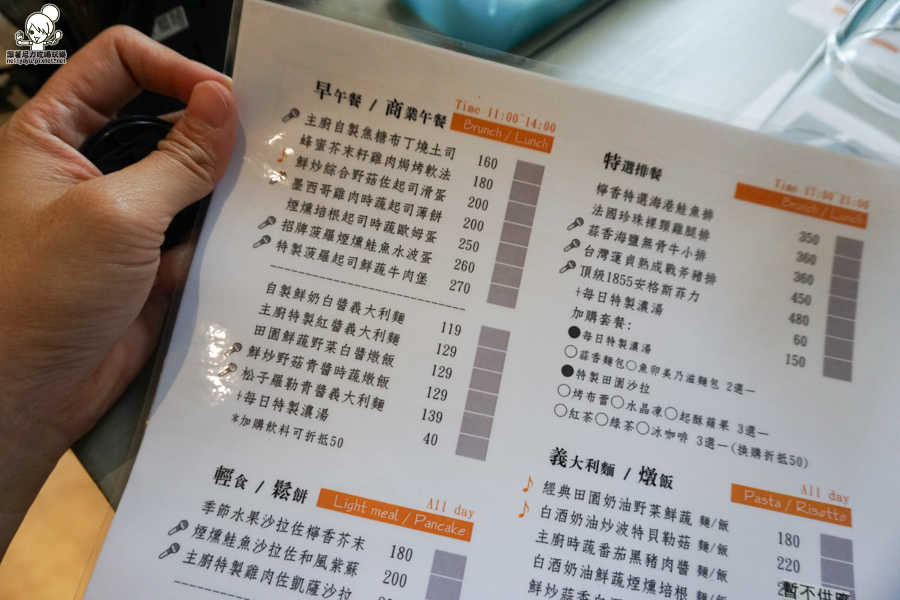 跟著尼力吃喝玩樂
nellydyu.pixnet.net
早午餐 / 商業午餐 Time 11:00~14:00
Brunch / Lunch
主廚自製焦糖布丁燒土司 160
蜂蜜芥末籽雞肉焗烤軟法 180
鮮炒綜合野菇佐起司滑蛋 200
墨西哥雞肉時蔬起司薄餅 200
煙燻培根起司時蔬歐姆蛋 250
招牌菠蘿煙燻鮭魚水波蛋 260
特製菠蘿起司鮮蔬牛肉堡 270
自製鮮奶白醬義大利麵 119
主廚特製紅醬義大利麵 129
田園鮮蔬野菜白醬燉飯 129
鮮炒野菇青醬時蔬燉飯 129
松子羅勒青醬義大利麵 139
+每日特製濃湯 40
*加購飲料可折抵50
輕食 / 鬆餅 All day
Light meal / Pancake
季節水果沙拉佐檸香芥末 180
煙燻鮭魚沙拉佐和風紫蘇 200
主廚特製雞肉佐凱薩沙拉
特選排餐 Time 17:00~21:00
Brunch / Lunch
檸香特選海港鮭魚排 350
法國珍珠裸頸雞腿排 360
蒜香海鹽無骨牛小排 360
台灣蓮貞熟成戰斧豬排 450
頂級1855安格斯菲力 480
+每日特製濃湯 60
加購套餐: 150
●每日特製濃湯
○蒜香麵包○魚卵美乃滋麵包 2選一
●特製田園沙拉
○烤布蕾○水晶凍○起酥蘋果 3選一
○紅茶○綠茶○冰咖啡 3選一(換購折抵50)
義大利麵 / 燉飯 All day
Pasta / Risotto
經典田園奶油野菜鮮蔬 麵/飯 180
白酒奶油炒波特貝勒菇 麵/飯 220
主廚時蔬番茄黑豬肉醬 麵/飯
白酒奶油鮮蔬煙燻培根 麵/飯
暫不供應